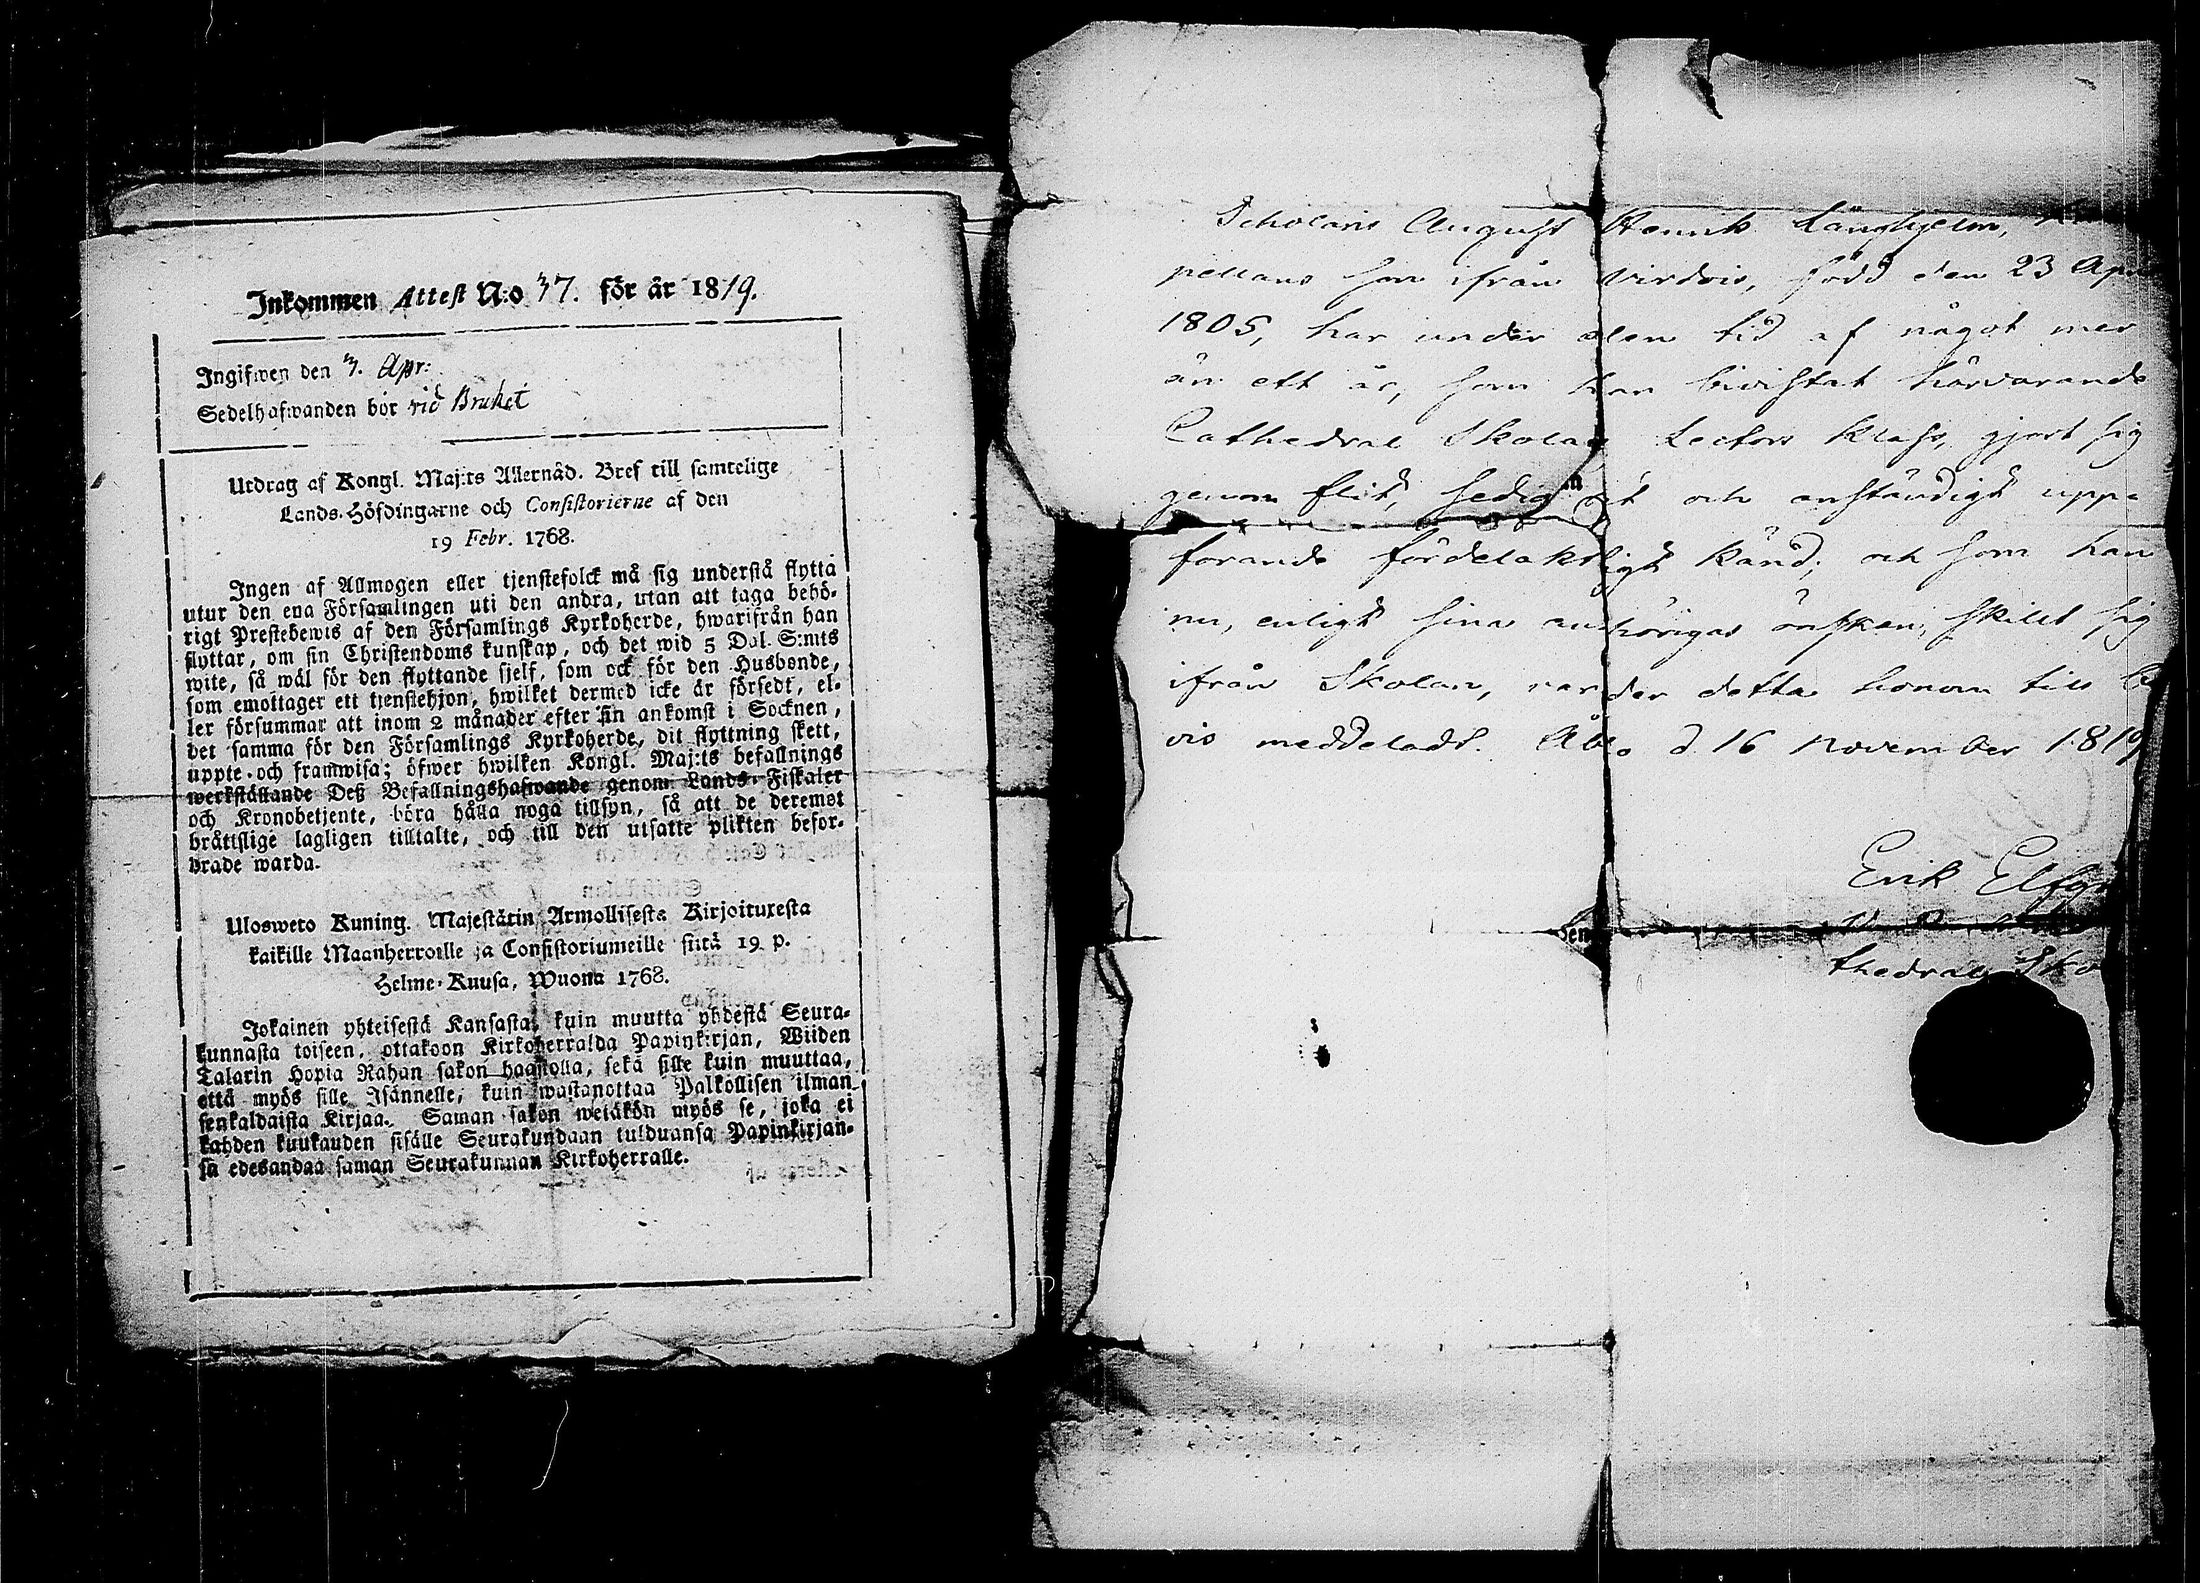 Inkommen Attest N:o 37. för år 1819.
Ingifwen den 3. Apr:
Sedelhafwanden bor vid Bruket
Utdrag af Kongl. Maj:ts Allernåd. Bref till samtelige
Lands-Höfdingarne och Consistorierne af den
19 Febr. 1768.
Ingen af Allmogen eller tjenstefolck må sig understå flytta
utur den ena Församlingen uti den andra, utan att taga behö-
rigt Prestebewis af den Församlings Kyrkoherde, hwarifrån han
flyttar, om sin Christendoms kunskap, och det wid 5 Dal. S:mts
wite, så wäl för den flyttande sjelf, som ock för den Husbonde,
som emottager ett tjenstehjon, hwilket dermed icke är försedt, el-
ler försummar att inom 2 månader efter sin ankomst i Socknen,
det samma för den Församlings Kyrkoherde, dit flyttning skett,
uppte- och framwisa; öfwer hwilken Kongl. Maj:ts befallnings
werkställande Deß Befallningshafwande genom Lands-Fiskaler
och Kronobetjente, böra hålla noga tillsyn, så att de deremot
bråttslige lagligen tilltalte, och till den utsatte plikten befor-
drade warda.
Ulosweto Kuning. Majestätin Armollisesta Kirjoituxesta
kaikille Maanherroille ja Consistoriumeille siitä 19 p.
Helme-Kuusa, Wuonna 1768.
Jokainen yhteisestä Kansasta, kuin muutta yhdestä Seura-
kunnasta toiseen, ottakoon Kirkoherralda Papinkirjan, Wiiden
Talarin Hopia Rahan sakon haastolla, sekä sille kuin muuttaa,
että myös sille Isännelle, kuin wastanottaa Palkollisen ilman
senkaldaista Kirjaa. Saman sakon wetäkön myös se, joka ei
kahden kuukauden sisälle Seurakundaan tulduansa Papinkirjan-
sa edesandaa saman Seurakunnan Kirkoherralle.
Scholaris August Henrik Länghjelm,
pellans son ifrån Virdois, född den 23 Apr
1805, har under den tid af något mer
än ett år, som han bivistat härvarande
Cathedral Skolas Lectors Klass, gjort sig
genom flit, sedig och anständigt uppe
forande fördelaktigt känd; och som han
nu, enligt sina anhörigas önskan, skilt sig
ifrån Skolan, varder detta honom till Be
vis meddeladt. Åbo d. 16 November 1819
Erik Elfg
thedral Sko